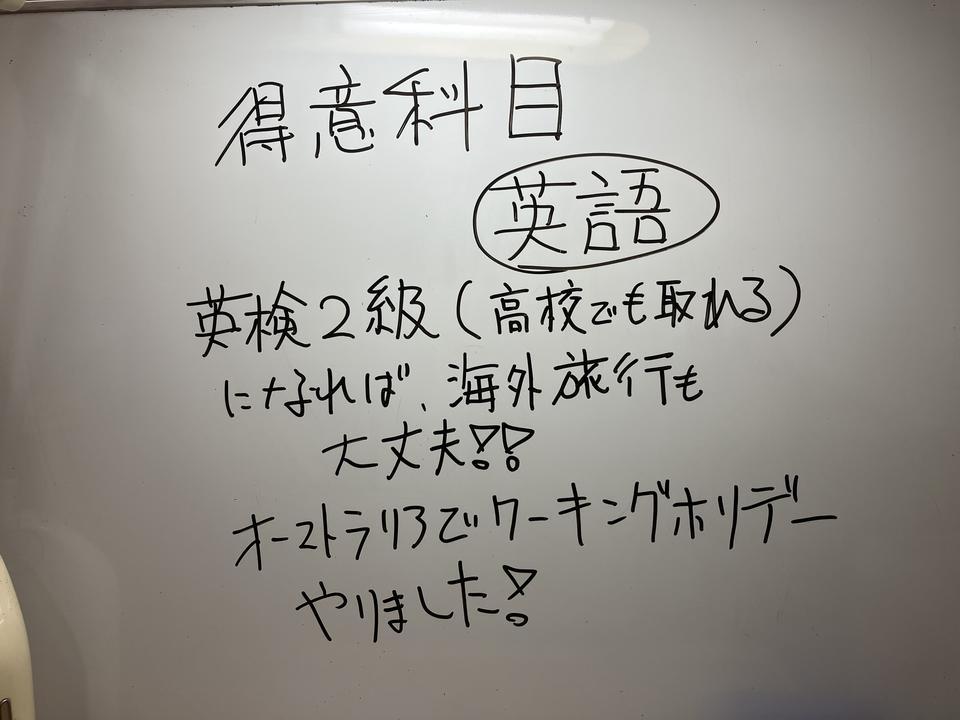 得意科目
英語
英検2級(高校でも取れる)
になれば、海外旅行も
大丈夫!!
オーストラリアでワーキングホリデー
やりました!